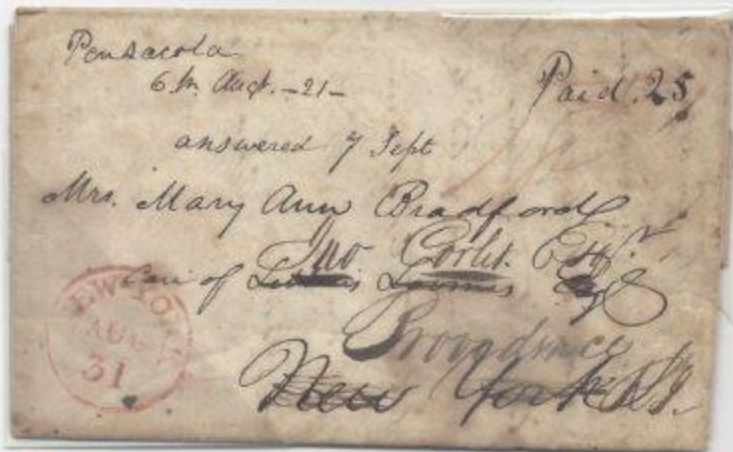 Pensacola
6th Augt. -21-
Paid. 25
answered 7 Sept
Mrs. Mary Ann Bradford
Jno Corlis. Esqr
Care of Lewis Loomis Esq
Providence
New York R.I.
NEW YORK
AUG
31